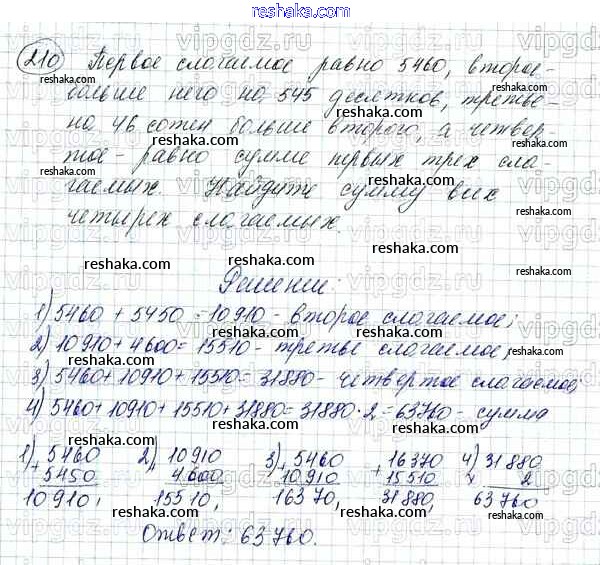 reshaka.com
210 Первое слагаемое равно 5460, второе-
больше него на 545 десятков, третье-
на 46 сотен больше второго, а четвер-
тое - равно сумме первых трех сла-
гаемых. Найдите сумму всех
четырех слагаемых.
Решение:
1) 5460 + 5450 = 10910 - второе слагаемое;
2) 10910 + 4600 = 15510 - третье слагаемое;
3) 5460 + 10910 + 15510 = 31880 - четвертое слагаемое;
4) 5460 + 10910 + 15510 + 31880 = 31880 · 2 = 63760 - сумма
1) 5460 2) 10910 3) 5460 16370 4) 31880
+ 5450 + 4600 + 10910 + 15510 × 2
10910, 15510, 16370, 31880, 63760
Ответ: 63760.